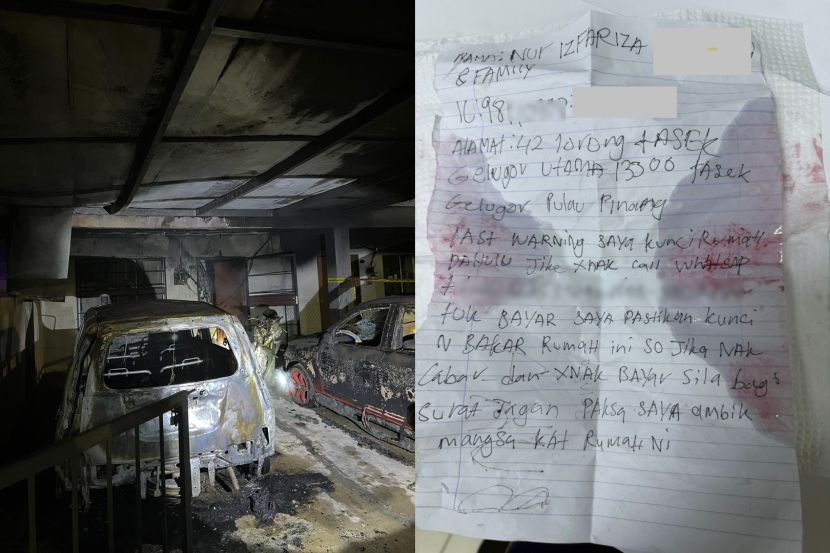 NAMA: NUR IZFARIZA
& FAMILY
ALAMAT: 42 lorong tASEK
Gelugor UtAMA 13300 tASek
Gelugor Pulau Pinang
LASt WARNING SAYA kunci RUMAH
DAHULU Jike XNAK call Whatsap
tUk BAYAR SAYA PAStikan kunci
N BAKAR Rumah ini SO Jika NAk
Cabar dan XNAK BAYAR Sila bag
Surat Jngan PAKSA SAYA ambik
mangsa KAt RUMAH Ni